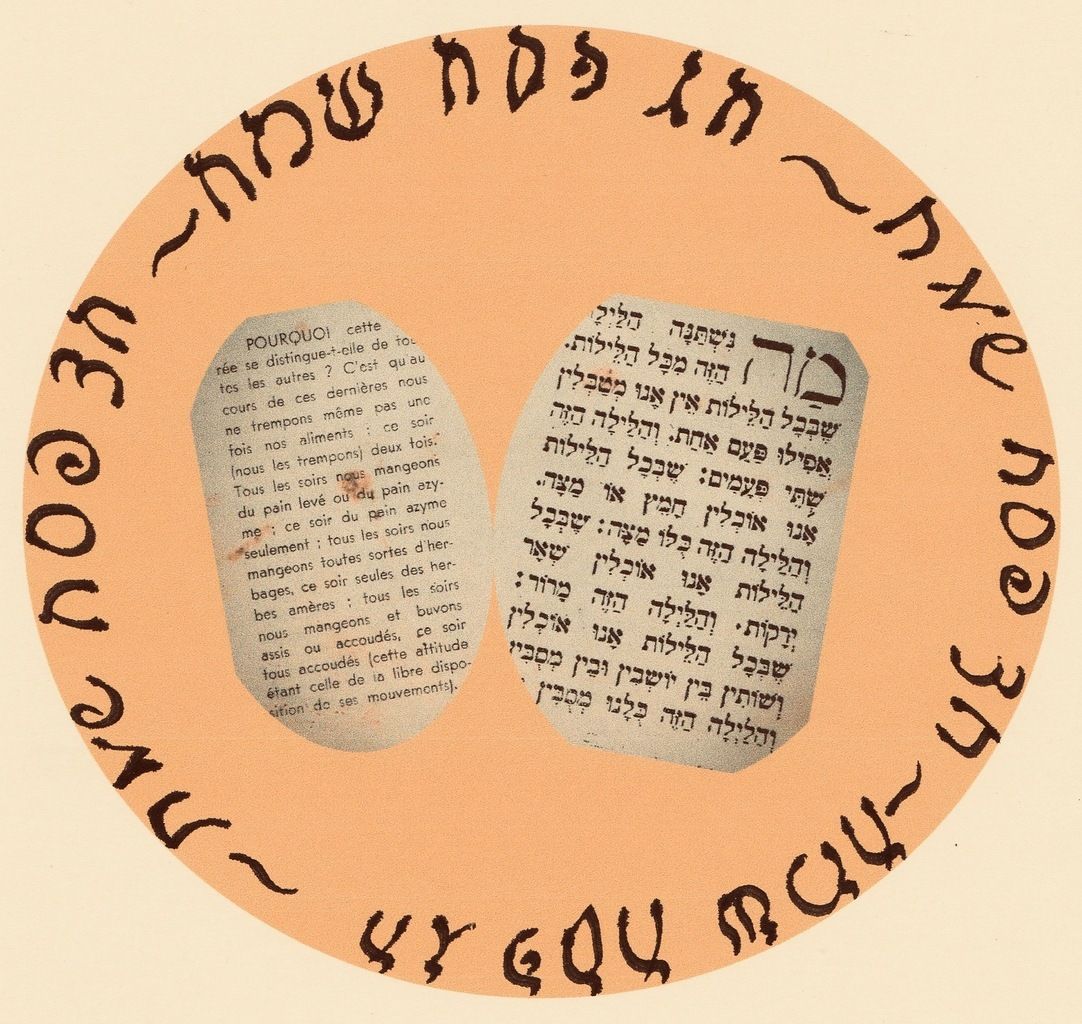 חג פסח שמח ~
חג פסח שמח ~
חג פסח שמח ~
חג פסח שמח ~
POURQUOI cette
rée se distingue-t-elle de tou-
tes les autres ? C'est qu'au
cours de ces dernières nous
ne trempons même pas une
fois nos aliments ; ce soir
(nous les trempons) deux fois.
Tous les soirs nous mangeons
du pain levé ou du pain azy-
me ; ce soir du pain azyme
seulement ; tous les soirs nous
mangeons toutes sortes d'her-
bages, ce soir seules des her-
bes amères ; tous les soirs
nous mangeons et buvons
assis ou accoudés, ce soir
tous accoudés (cette attitude
étant celle de la libre dispo-
sition de ses mouvements).
מַה נִּשְׁתַּנָּה הַלַּיְלָה
הַזֶּה מִכָּל הַלֵּילוֹת.
שֶׁבְּכָל הַלֵּילוֹת אֵין אָנוּ מְטַבְּלִין
אֲפִילוּ פַּעַם אֶחָת. וְהַלַּיְלָה הַזֶּה
שְׁתֵּי פְּעָמִים: שֶׁבְּכָל הַלֵּילוֹת
אָנוּ אוֹכְלִין חָמֵץ אוֹ מַצָּה.
וְהַלַּיְלָה הַזֶּה כֻּלּוֹ מַצָּה: שֶׁבְּכָל
הַלֵּילוֹת אָנוּ אוֹכְלִין שְׁאָר
יְרָקוֹת. וְהַלַּיְלָה הַזֶּה מָרוֹר:
שֶׁבְּכָל הַלֵּילוֹת אָנוּ אוֹכְלִין
וְשׁוֹתִין בֵּין יוֹשְׁבִין וּבֵין מְסֻבִּין
וְהַלַּיְלָה הַזֶּה כֻּלָּנוּ מְסֻבִּין